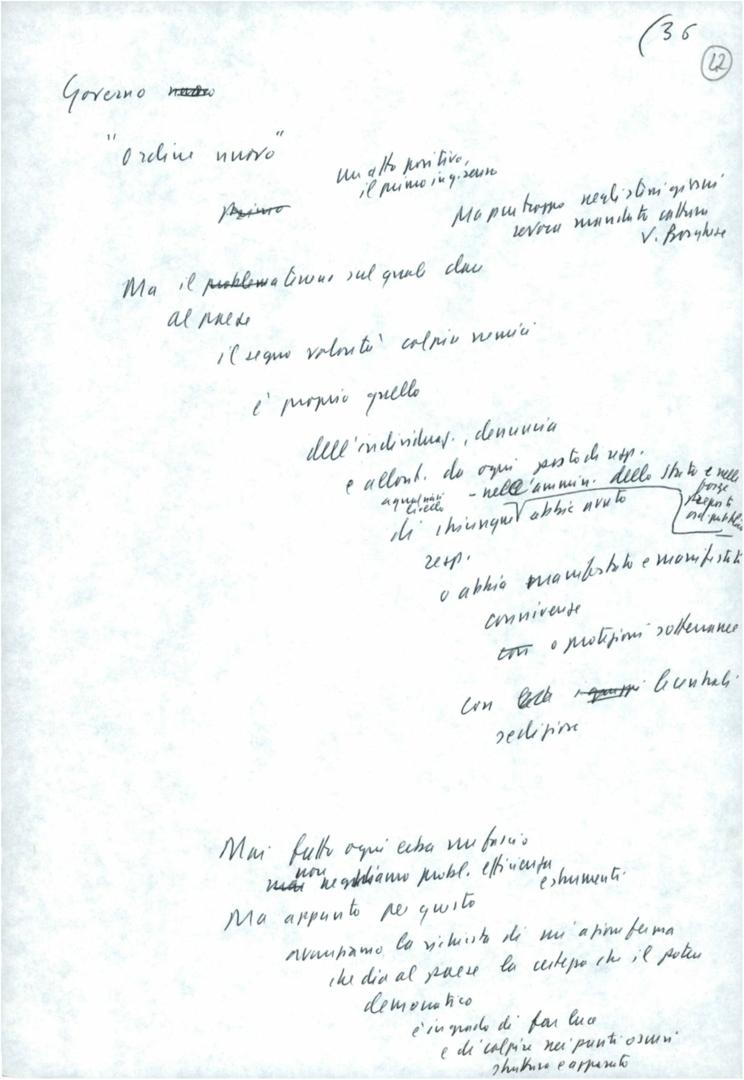 (36
42
Governo nuovo
"Ordine nuovo"
un atto positivo,
il primo in q. senso
Primo
Ma purtroppo negli stessi giorni
revoca mandato cattura
V. Borghese
Ma il problema terreno sul quale dare
al paese
il segno volontà colpire nemici
è proprio quello
dell'individuaz., denuncia
e allont. da ogni posto di resp.
a qualsiasi
livello
- nell'ammin. dello stato e nelle
forze
preposte
ord. pubblico
di chiunque abbia avuto
resp.
o abbia manifestato e manifesti
connivenze
con o protezioni sotterranee
con le centrali
sediziose
Mai fatto ogni erba un fascio
non
mai neghiamo probl. efficienza
e strumenti.
Ma appunto per questo
avanziamo la richiesta di un'azione ferma
che dia al paese la certezza che il potere
democratico
è in grado di far luce
e di colpire nei punti oscuri
strutture e apparato